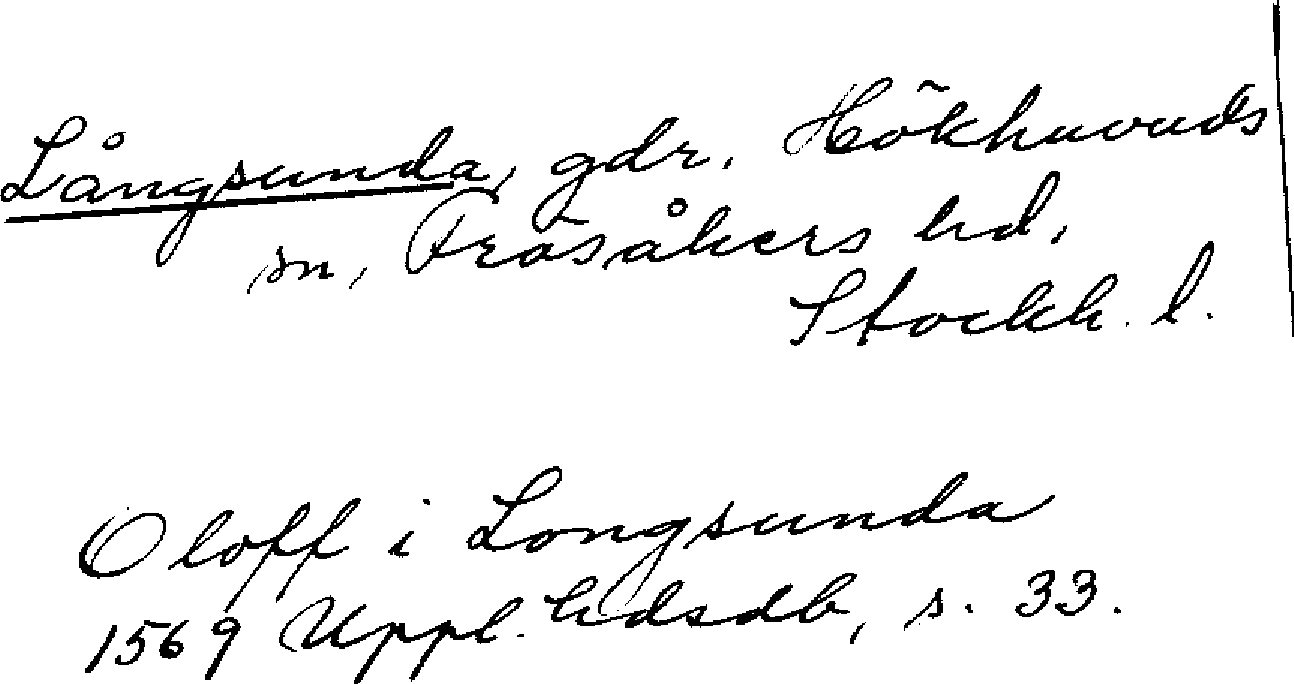 Långsunda, gdr. Hökhuvuds
sn, Frösåkers hd,
Stockh. l.
Oloff i Longsunda
1569 Uppl. hdsdb, s. 33.